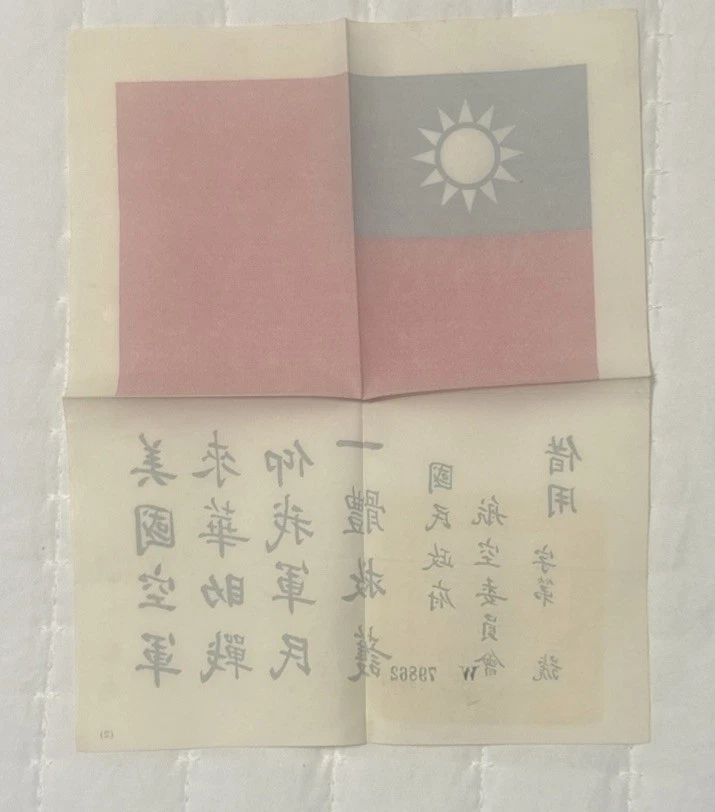 美國空軍
來華助戰
仰我軍民
一體救護
國民政府
航空委員會
借用
字第 號
W 79862
(2)